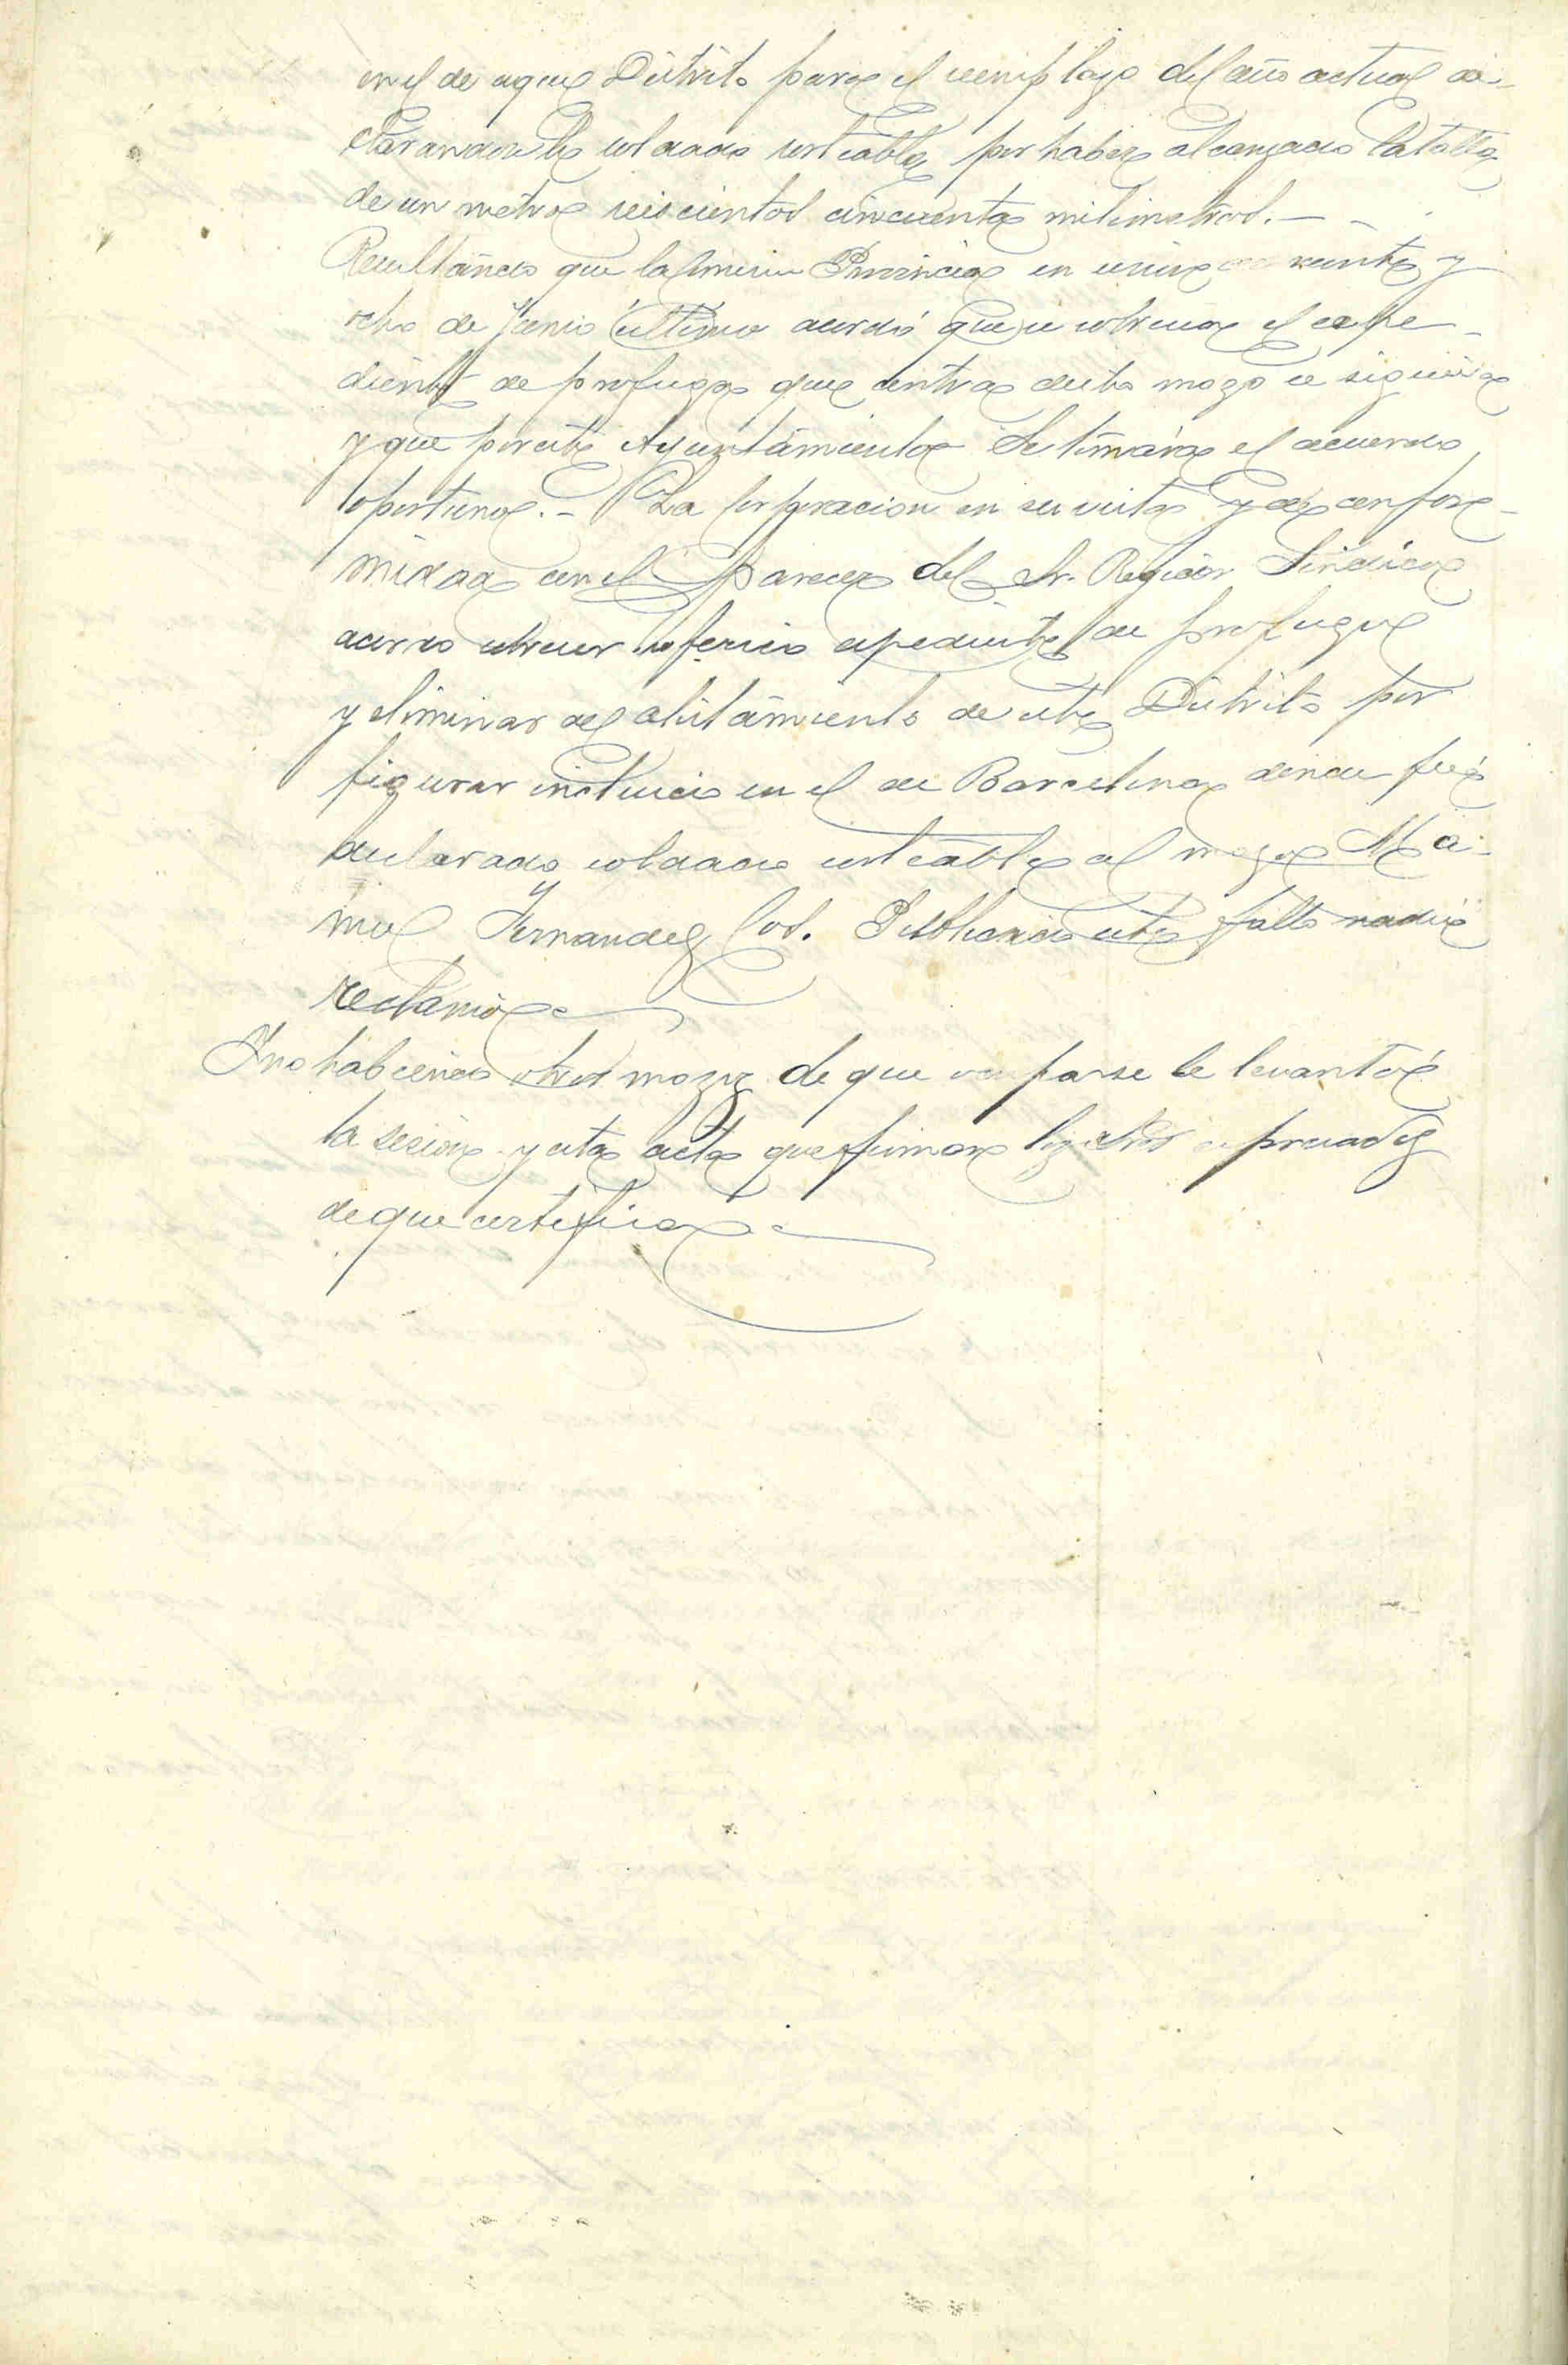 en el de aquel Distrito para el reemplazo del año actual de-
clarandosele soldado sorteable, por haber alcanzado la talla
de un metro seiscientos cincuenta milimetros. —
Resultando que la Comision Provincial en sesion de veinte y
ocho de Junio último acordó que se sobresea el espe-
diente de profugo que contra dicho mozo se siguiera
y que por este Ayuntamiento se tomára el acuerdo
oportuno. - La Corporacion en su vista y de confor-
midad con el parecer del Sr. Regidor Sindico
acordó sobreseer referido espediente de profugo
y eliminar del alistamiento de este Distrito por
figurar incluido en el de Barcelona donde fué
declarado soldado sorteable al mozo Ma-
nuel Fernandez Cos. Publicado este fallo nadie
reclamó
Y no habiendo otros mozos de que ocuparse se levantó
la sesion y esta acta que firman los Sres espresados
de que certifico